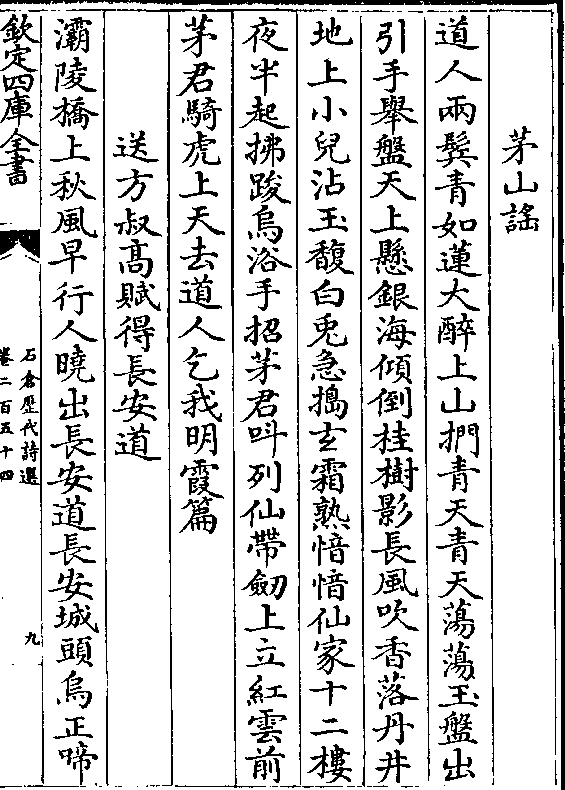 茅山謠
道人兩鬓青如蓮大醉上山捫青天青天蕩蕩玉盤出
引手舉盤天上懸銀海傾倒桂樹影長風吹香落丹井
地上小兒沾玉馥白兎急搗玄霜熟愔愔仙家十二樓
夜半起拂踆烏浴手招茅君呌列仙帶劒上立紅雲前
茅君騎虎上天去道人乞我明霞篇
送方叔髙賦得長安道
灞陵橋上秋風早行人曉出長安道長安城頭烏正啼
欽定四庫全書
石倉歷代詩選
卷二百五十四
九